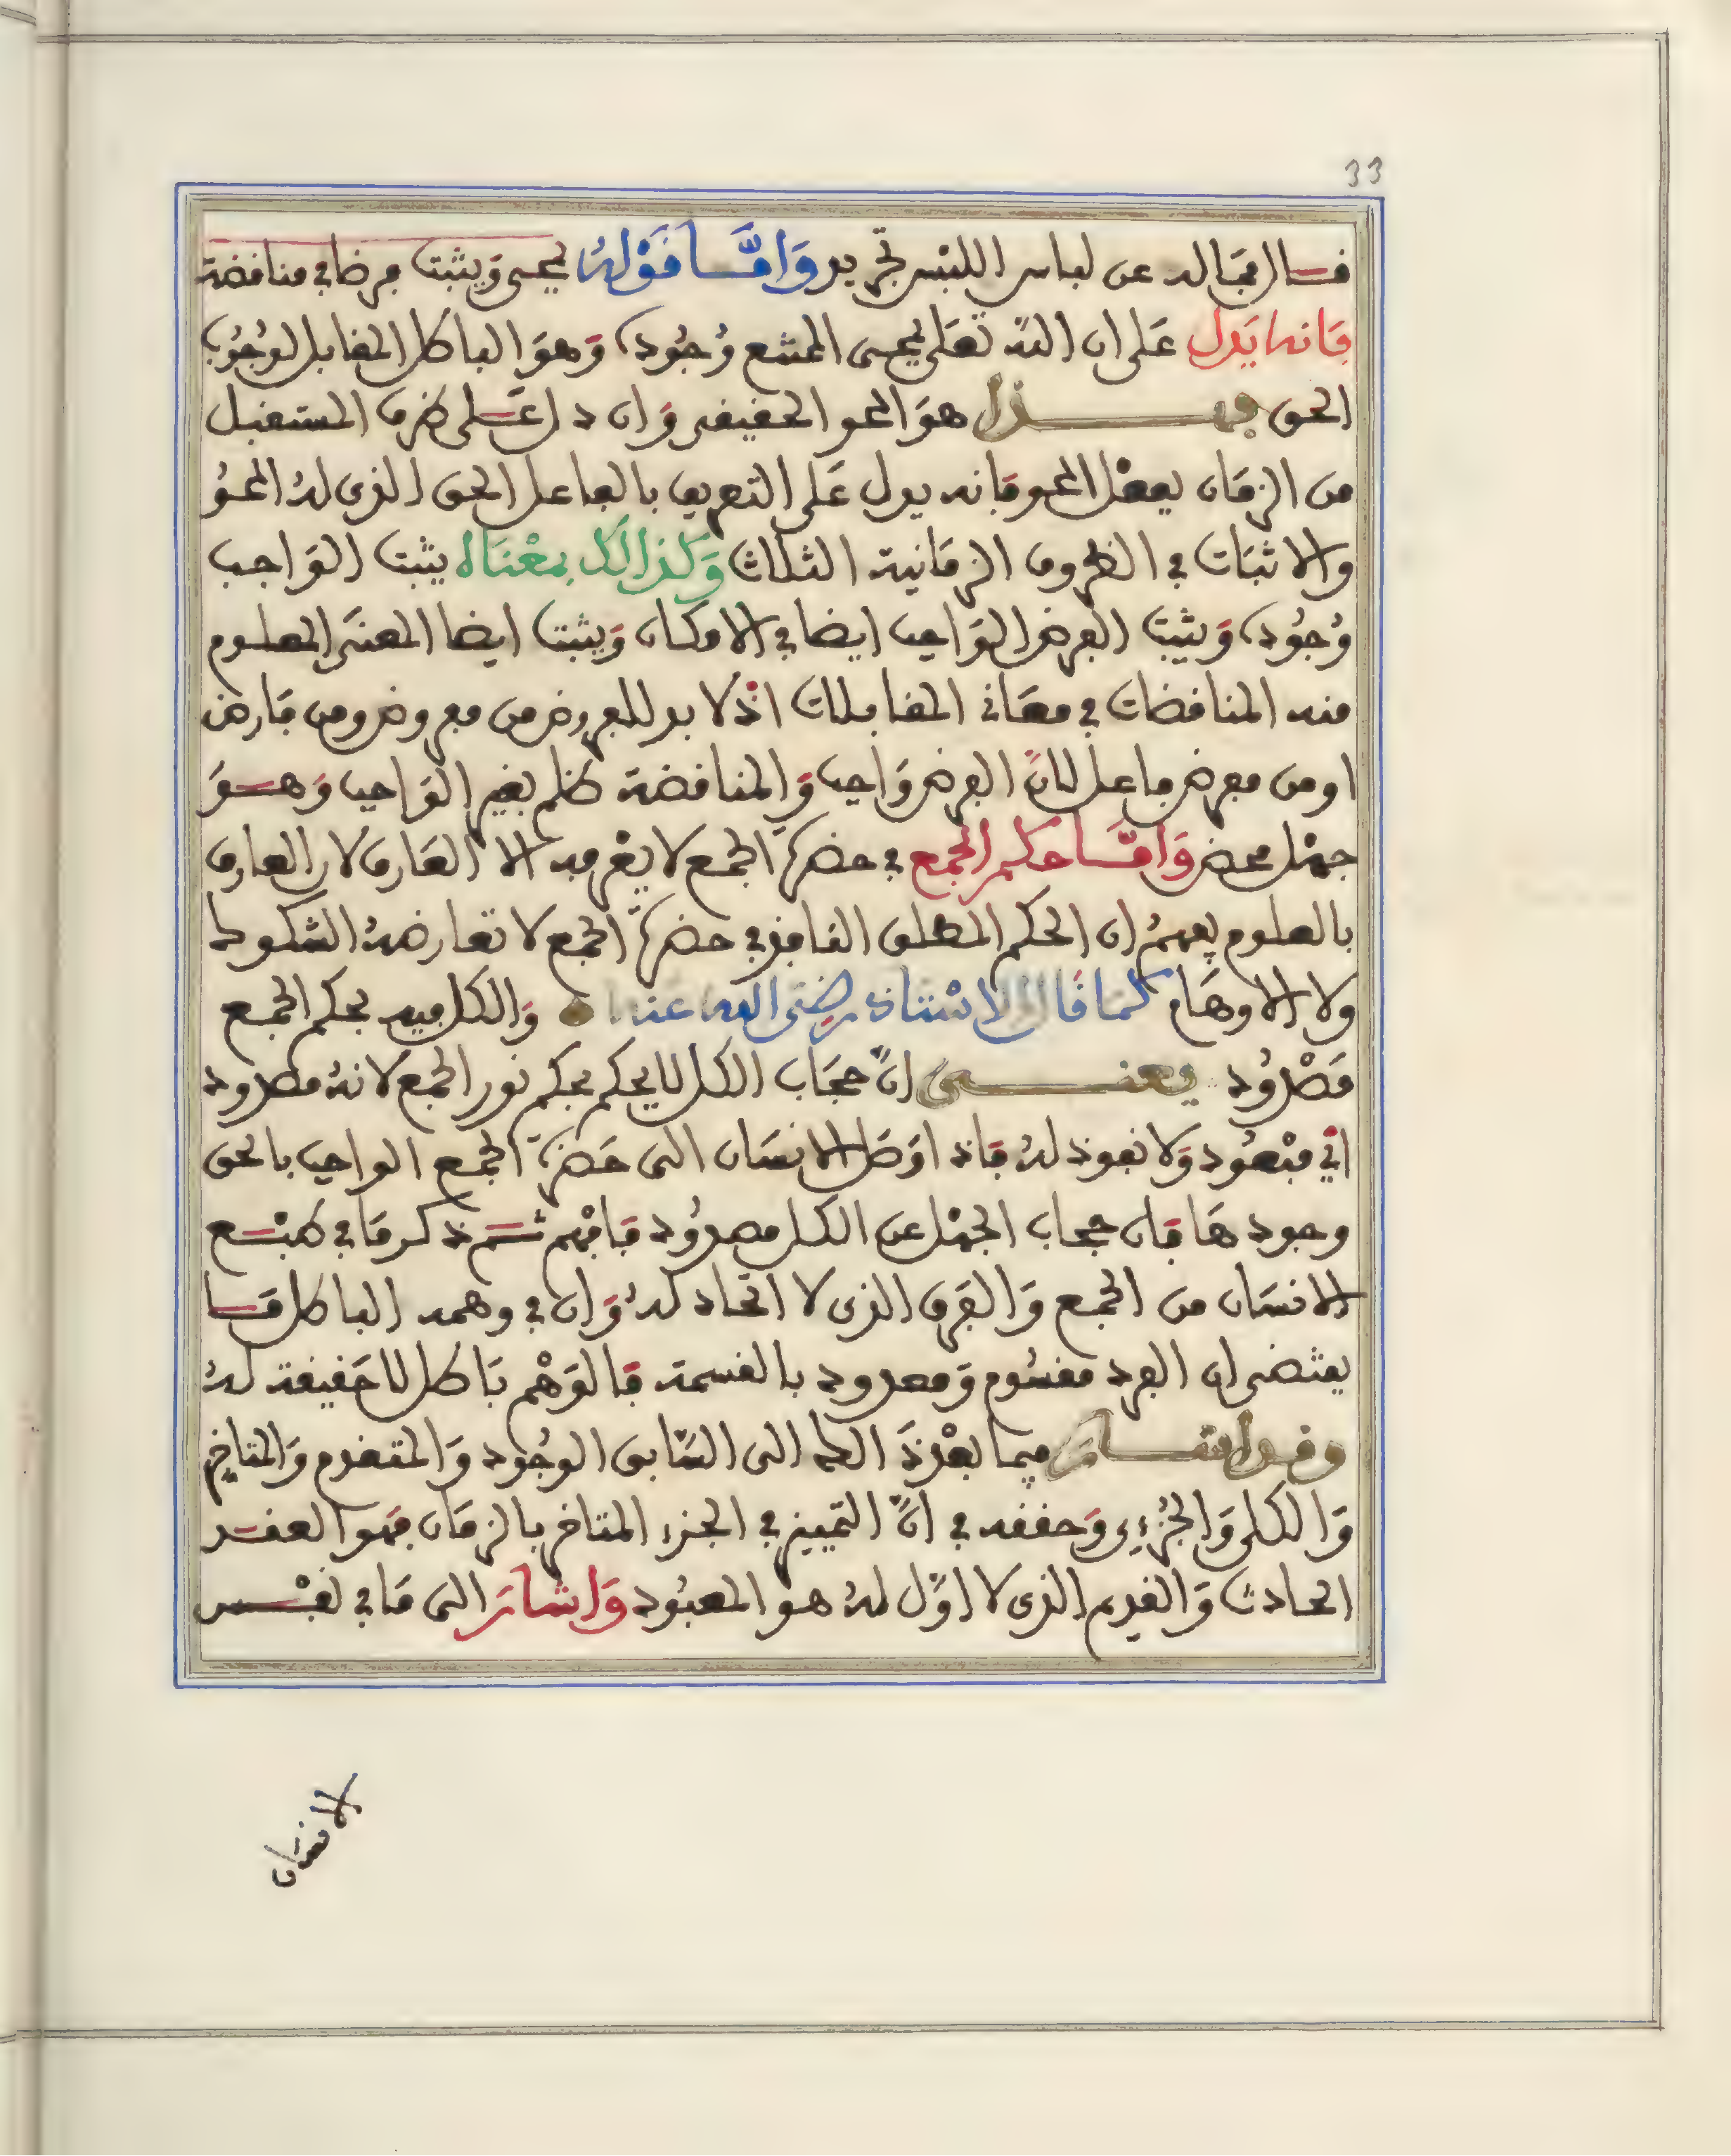 33
قال مقاله عن لباس اللبس تجريد وَامَّا قَوْلهُ يمحى وَيثبت فرضا في مناقضة
فَانه يَدل عَلى ان الله تعَلى يمحى الممتنع وُجُوده وَهوَ الباطل المقابل لوُجُوب
الحق فهذا هوَ المحو الحقيقي وَان دل عَلى ظرف المستقبل
من الزمَان بفعْل المحو فَانه يدل عَلى التعريف بالفاعل الحق الذى لهُ المحوُ
والاثبَات في الظروف الزمَانية الثلاث وَكذالك بمعْنَاه يثبت الوَاجب
وُجُوده وَيثبت الفرض الوَاجب ايضا في الامكان وَيثبت ايضا المعنَى المعلوم
منه المناقضات في معَاني المقابلات اذْ لا بد للمعروض من معروض ومن فَارض
او من مفرض فاعل لانَّ الفرض وَاجب وَالمناقضة ظلم بغير الوَاجب وَهوَ
جهْل محض وَامَّا حكم الجمع في حضرَة الجمع لا يعْرفه الا العَارف لان العارف
بالعلوم يفهمُ ان الحكم المطلق النافذ في حضرَة الجمع لا تعارضهُ الشكوك
ولا الاوهَام كمَا قَال الاسْتاذ رضى الله عنه وَالكل فيه بحكم الجمع
مَصْدُود يعنى انَّ حجَاب الكل لا يحكم بحكم نور الجمع لانهُ مطرود
اي مبْعُود وَلا نفوذ لهُ فَاذا وَصَل الانسَان الى حَضرَة الجمع الواجب بالحق
وجودهَا فَان حجاب الجهْل عن الكل مصدُود فَافهْم ثم ذكر مَا في طبْع
الانسَان من الجمع وَالفَرق الذى لا اتحاد لهُ وَان في وهمه الباطل مَا
يقتضى ان الفرد مقسُوم وَمعدود بالقسمة فَالوَهْم بَاطل لا حَقيقة لهُ
وقد اشار فيما بعْد ذَالك الى السَّابق الوجُود وَالمتقدم وَالمتاخر
وَالكلى وَالجُزءِى وَحققه في انَّ التمييز في الجزء المتاخر بالزمَان فهو العقد
الحادث وَالقديم الذى لا اوَّل لهُ هو المعبُود وَاشارَ الى مَا في نفْس
الانسَان